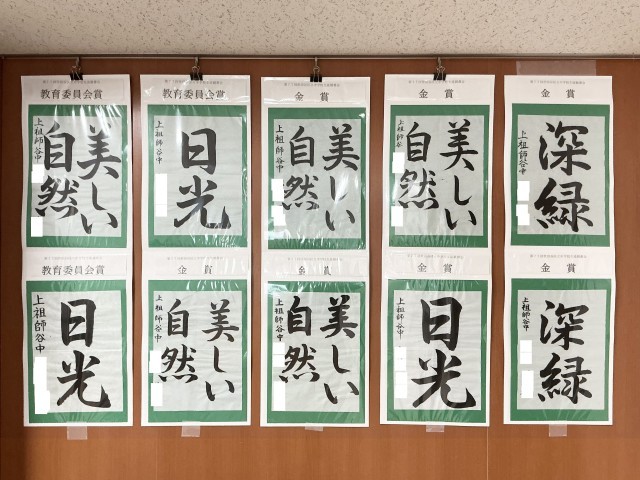 教育委員会賞
美しい
自然
上祖師谷中
教育委員会賞
日光
上祖師谷中
金賞
美しい
自然
上祖師谷中
金賞
美しい
自然
上祖師谷
金賞
深緑
上祖師谷中
教育委員会賞
日光
上祖師谷中
金賞
美しい
自然
上祖師谷中
金賞
美しい
自然
上祖師谷中
金賞
日光
上祖師谷中
金賞
深緑
上祖師谷中